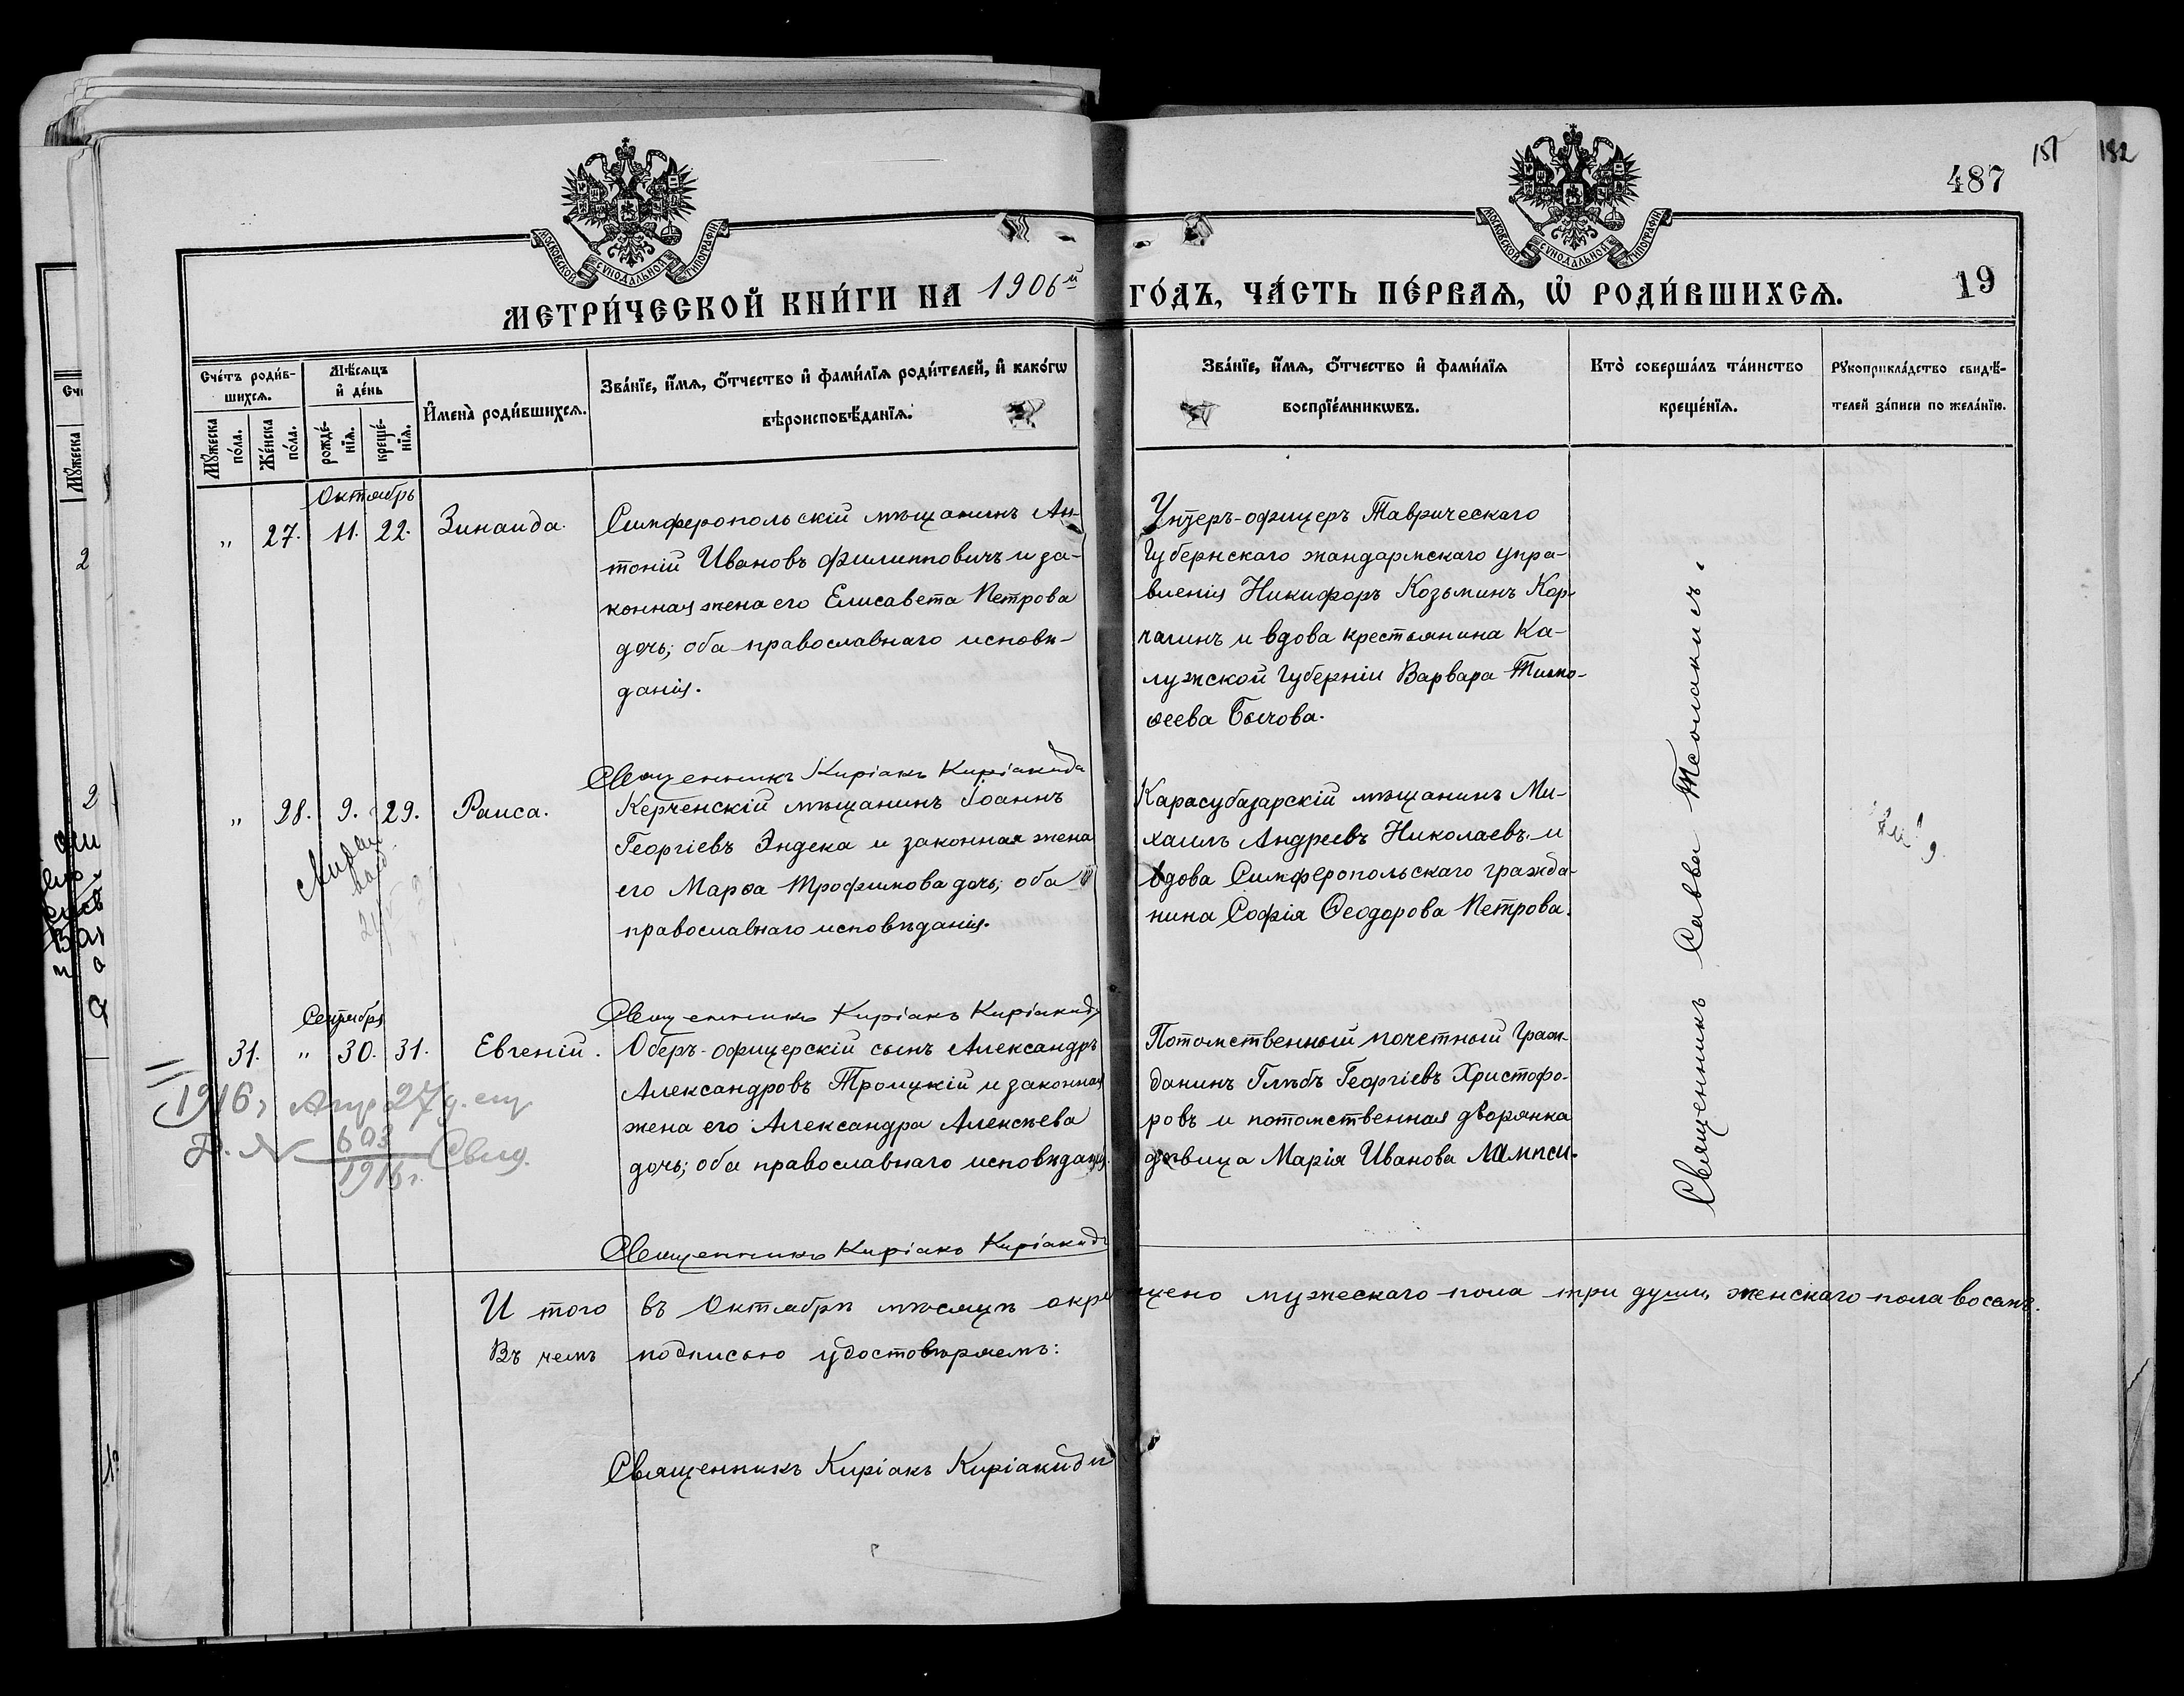 151 182
487
МОСКОВСКОЙ СѴНОДАЛЬНОЙ ТИПОГРАФІИ
МОСКОВСКОЙ СѴНОДАЛЬНОЙ ТИПОГРАФІИ
МЕТРИ́ЧЕСКОЙ КНИ́ГИ НА 1906й ГО́ДЪ, ЧА́СТЬ ПЕ́РВАѦ, Ѡ҆ РОДИ́ВШИХСѦ. 19
Сче́тъ роди́в-
шихсѧ.
Мѣ́сѧцъ
и҆ де́нь
Мꙋ́жеска по́ла.
Же́нска по́ла.
рожде́-
нїѧ.
креще́-
нїѧ.
И҆мена̀ роди́вшихсѧ.
Зва́нїе, и҆́мѧ, ѻ҆́тчество и҆ фами́лїѧ роди́телей, и҆ како́гѡ
вѣроисповѣ́данїѧ.
Зва́нїе, и҆́мѧ, ѻ҆́тчество и҆ фами́лїѧ
воспрїе́мникѡвъ.
Кто̀ соверша́лъ та́инство
креще́нїѧ.
Рꙋкоприкла́дство свидѣ́-
телей за́писи по жела́нїю.
Октябрь
„ 27. 11. 22. Зинаида.
Симферопольскій мѣщанинъ Ан-
тоній Ивановъ Филипповичъ и за-
конная жена его Елисавета Петрова
дочь; оба православнаго исповѣ-
данія.
Унтеръ-офицеръ Таврическаго
Губернскаго жандармскаго упра-
вленія Никифоръ Козьминъ Кор-
чагинъ и вдова крестьянина Ка-
лужской Губерніи Варвара Тимо-
ѳеева Бычова.
Священникъ Киріакъ Киріакиди
„ 28. 9. 29. Раиса.
Керченскій мѣщанинъ Іоаннъ
Георгіевъ Эндека и законная жена
его Марѳа Трофимова дочь; оба
православнаго исповѣданія.
Карасубазарскій мѣщанинъ Ми-
хаилъ Андреевъ Николаевъ и
вдова Симферопольскаго гражда-
нина Софія Ѳеодорова Петрова.
Священникъ Киріакъ Киріакиди
Сентябрь
31. „ 30. 31. Евгеній.
Оберъ-офицерскій сынъ Александръ
Александровъ Троицкій и законная
жена его Александра Алексѣева
дочь; оба православнаго исповѣданія.
Потомственный почетный Граж-
данинъ Глѣбъ Георгіевъ Христофо-
ровъ и потомственная дворянка
дѣвица Марія Иванова Лампси.
1916г Апр 27
603
1916 г. Свид.
Священникъ Киріакъ Киріакиди
Священникъ Савва Теолакисъ.
И того въ Октябрѣ мѣсяцѣ окрещено мужескаго пола три души, женскаго пола восемь.
Въ чемъ подписью удостовѣряемъ:
Священникъ Киріакъ Киріакиди